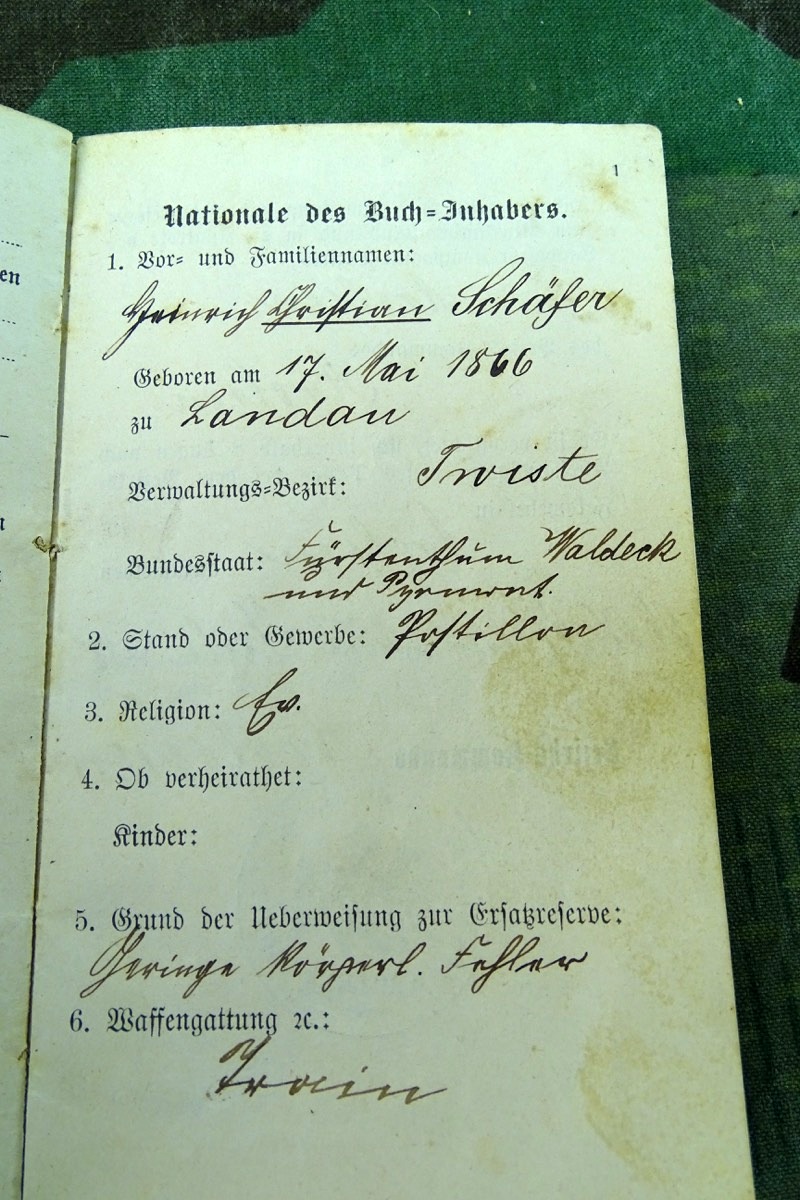 1
Nationale des Buch=Inhabers.
1. Vor= und Familiennamen:
Heinrich Christian Schäfer
Geboren am 17. Mai 1866
zu Landau
Verwaltungs=Bezirk: Twiste
Bundesstaat: Fürstenthum Waldeck
und Pyrmont.
2. Stand oder Gewerbe: Postillon
3. Religion: Ev.
4. Ob verheirathet:
Kinder:
5. Grund der Ueberweisung zur Ersatzreserve:
Geringe körperl. Fehler
6. Waffengattung ꝛc.:
Train
en